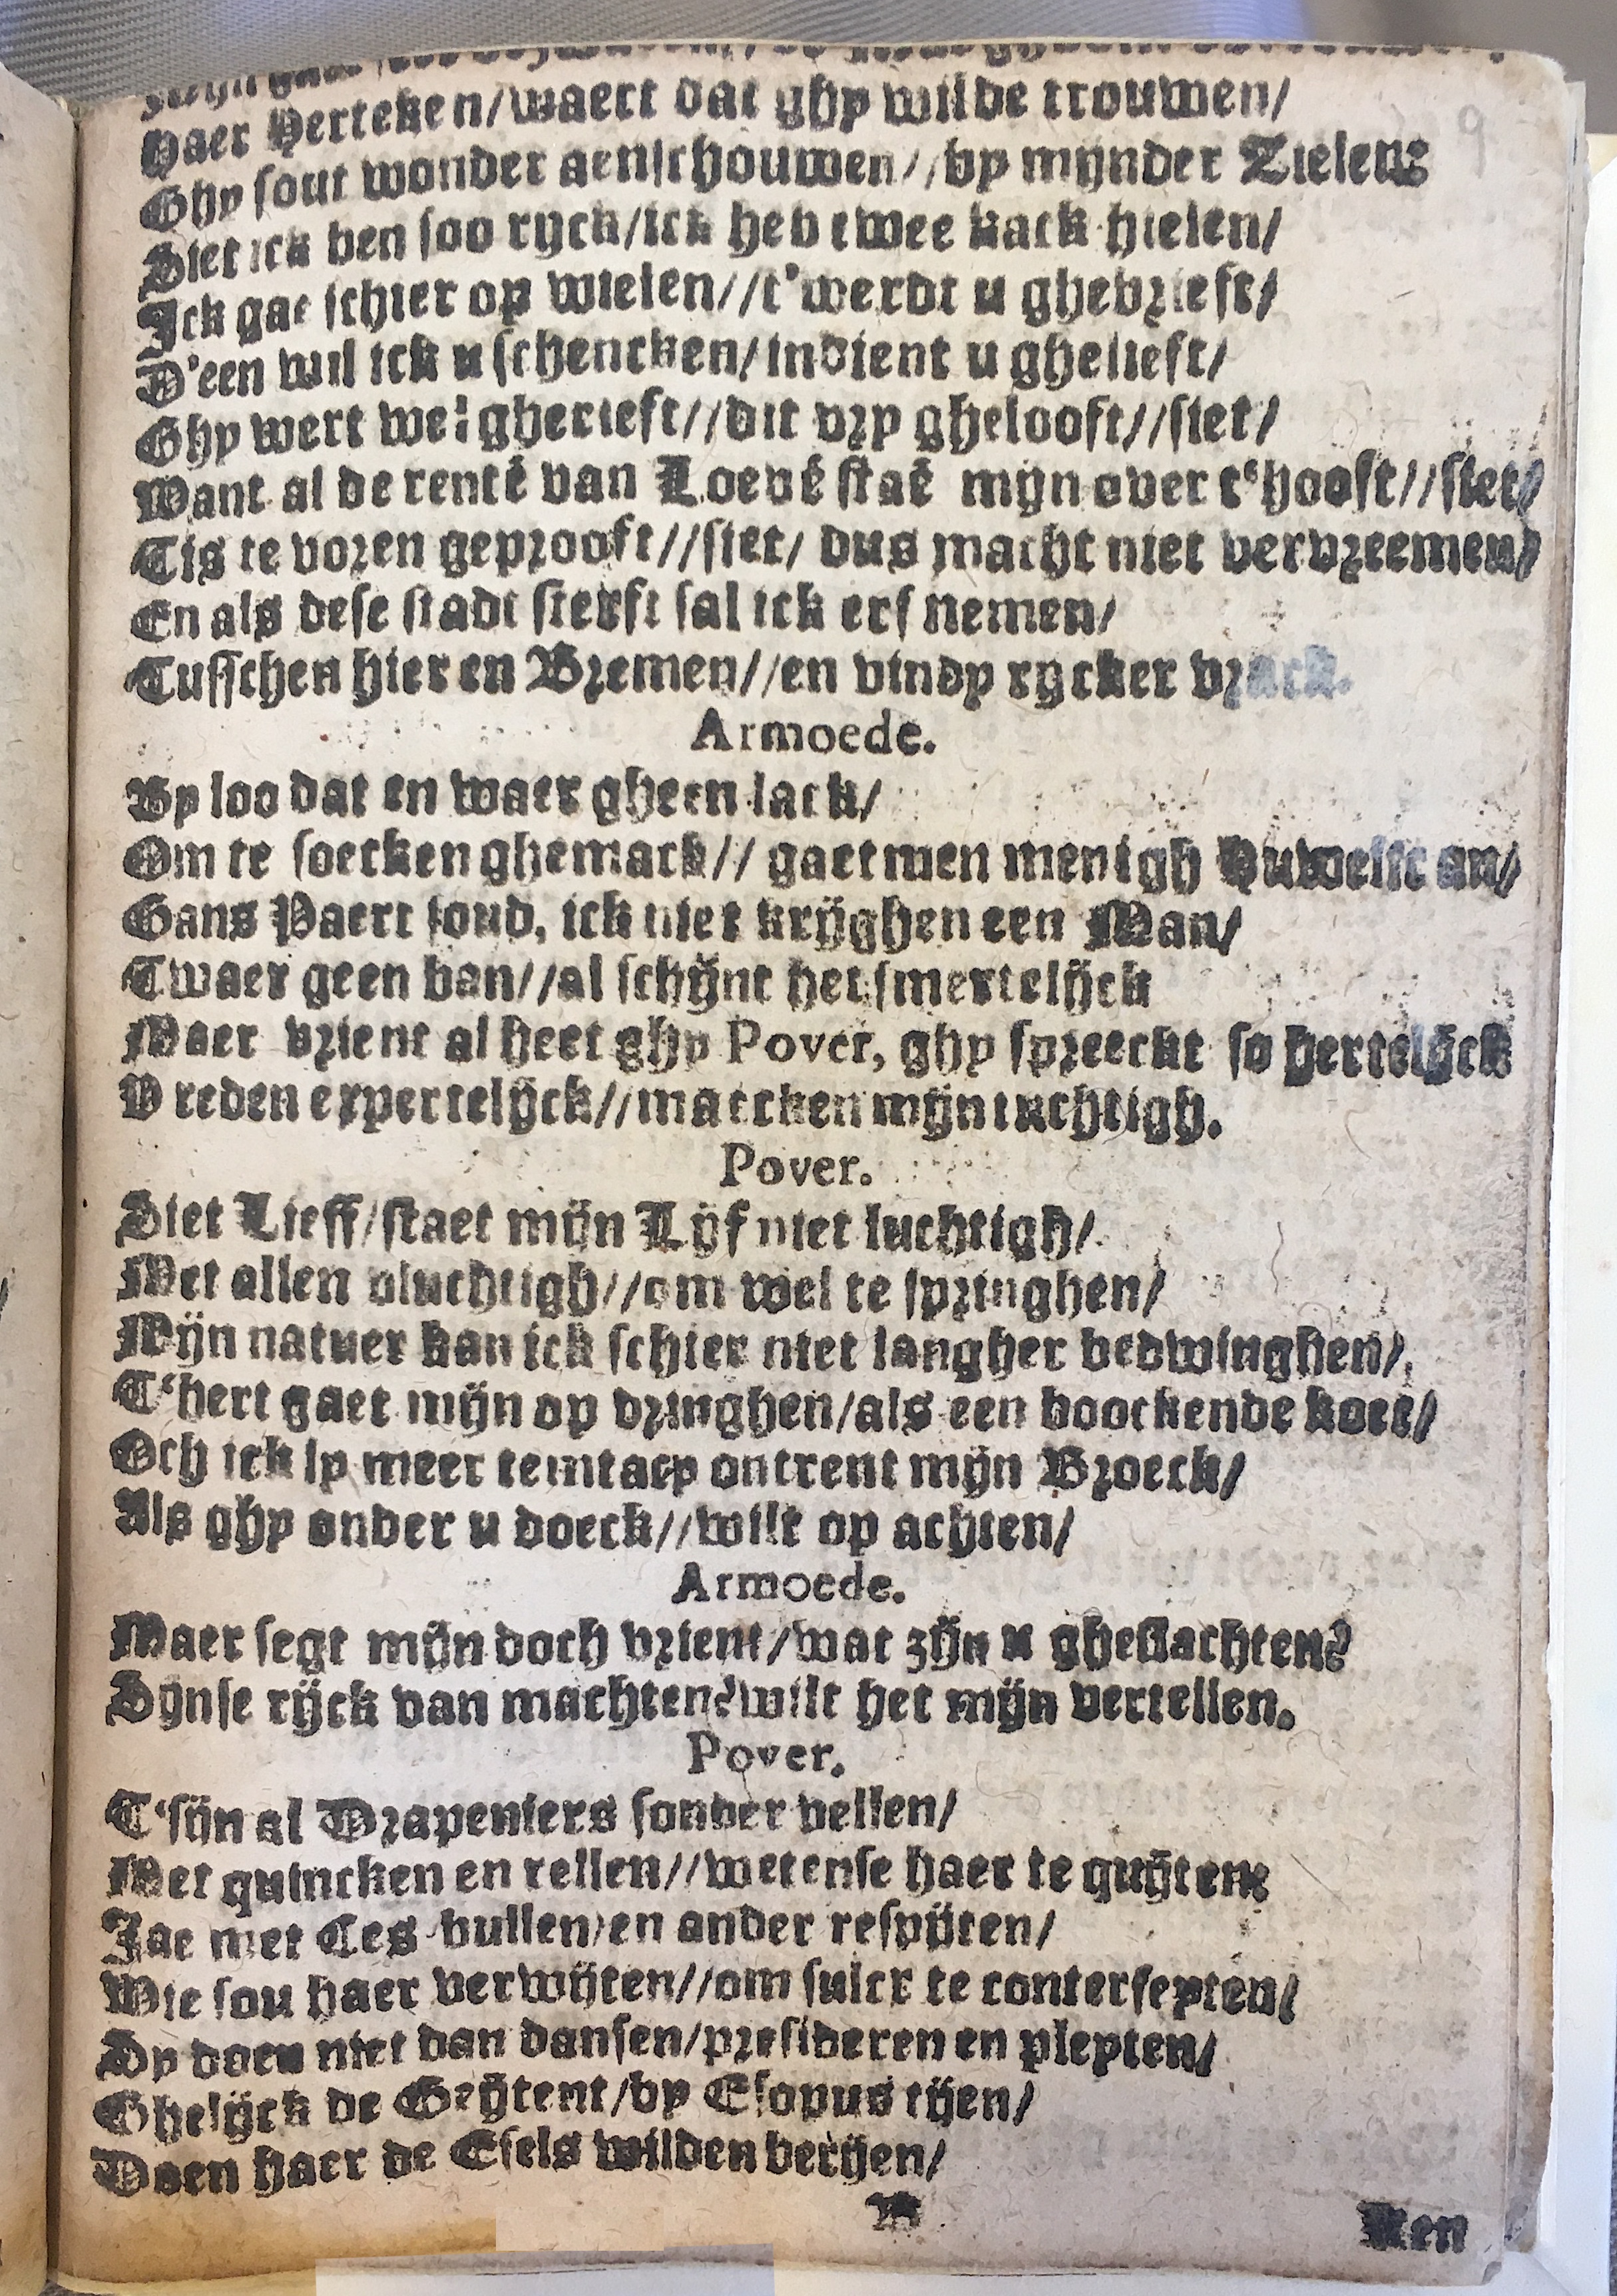 Haer Herteken/waert dat ghy wilde trouwen/
Ghy sout wonder aenschouwen//by mijnder Zielen:
Siet ick ben soo ryck/ick heb twee kack-hielen/
Ick gae schier op wielen//t'werdt u ghebrieft/
D'een wil ick u schencken/indient u ghelieft/
Ghy wert wel gherieft//dit vry ghelooft//siet/
Want al de rentē van Loevē staē mijn over t'hooft//siet/
Tis te voren geprooft//siet/ dus macht niet vervreemen/
En als dese stadt sterft sal ick erf nemen/
Tusschen hier en Bremen//en vindy rycker vrack.
Armoede.
By loo dat en waer gheen lack/
Om te soecken ghemack// gaetmen menigh Huwelic an/
Gans Paert soud, ick niet krijghen een Man/
Twaer geen ban//al schijnt het smertelijck
Maer vrient al heet ghy Pover, ghy spreeckt so hertelijck
V reden expertelijck//maecken mijn tuchtigh.
Pover.
Siet Lieff/staet mijn Lijf niet luchtigh/
Met allen vluchtigh//om wel te springhen/
Mijn natuer kan ick schier niet langher bedwinghen/
T'hert gaet mijn op dringhen/als een boockende koee/
Och ick ly meer temtacy ontrent mijn Broeck/
Als ghy onder u doeck//wilt op achten/
Armoede.
Maer segt mijn doch vrient/wat zijn u gheslachten?
Sijnse rijck van machten?wilt het mijn vertellen.
Pover.
T'sijn al Drapeniers sonder vellen/
Met quincken en rellen//wetense haer te quijten:
Jae met Ces-bullen/en ander respijten/
Wie sou haer verwijten//om sulcx te conterfeyten/
Sy doen niet dan dansen/presideren en pleyten/
Ghelijck de Geijtent/by Esopus tijen/
Doen haer de Esels wilden berijen/
B
Ken